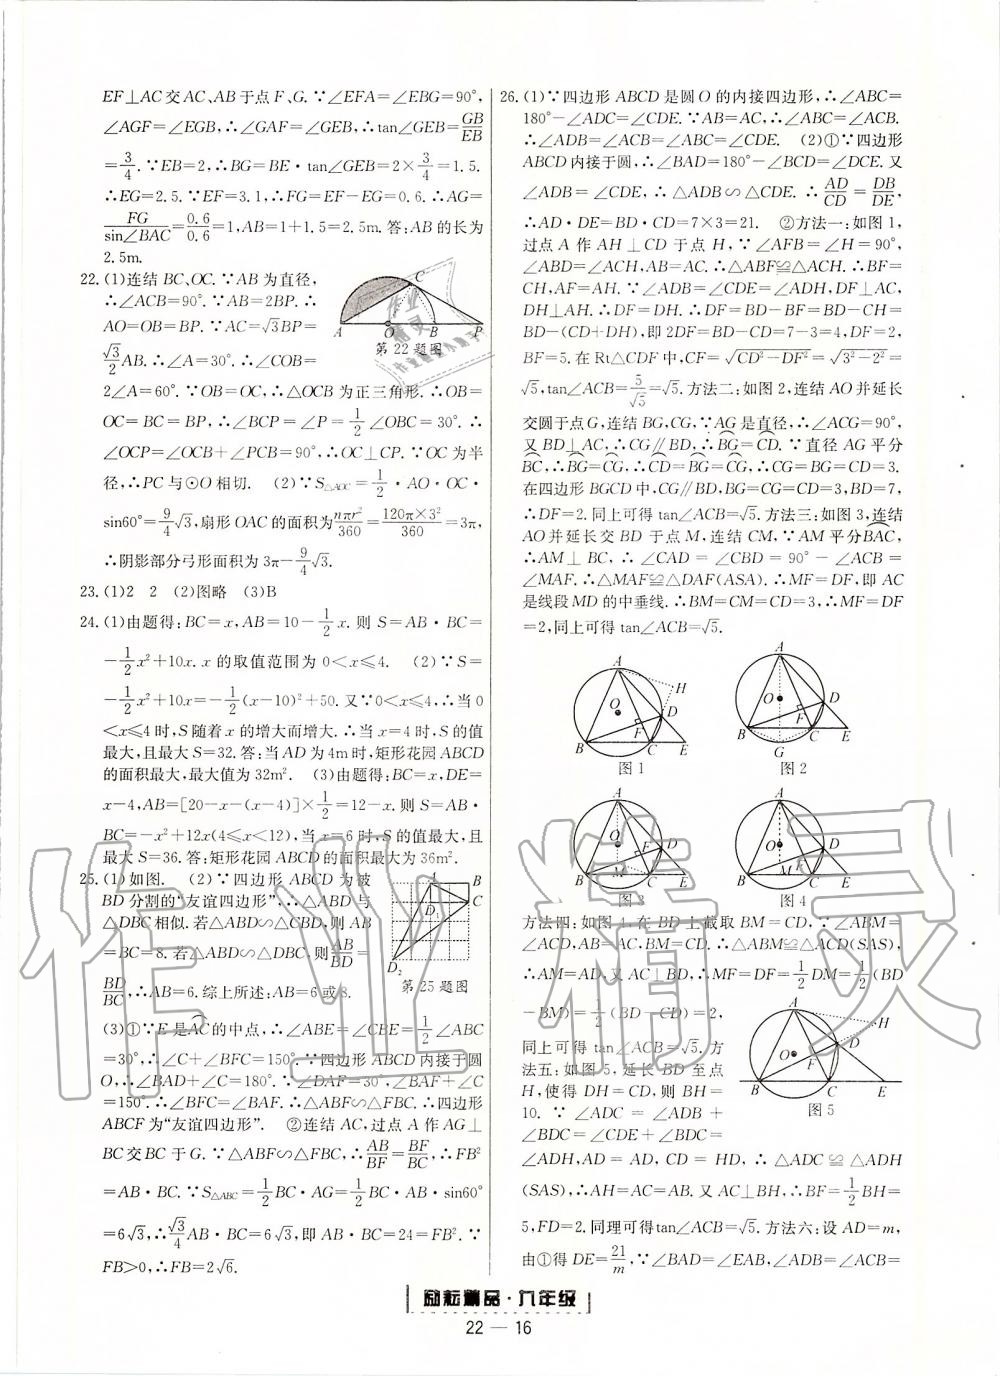 EF⊥AC交AC、AB于点F、G.∵∠EFA=∠EBG=90°,
∠AGF=∠EGB,∴∠GAF=∠GEB,∴tan∠GEB=GB/EB
=3/4.∵EB=2,∴BG=BE·tan∠GEB=2×3/4=1.5.
∴EG=2.5.∵EF=3.1,∴FG=EF-EG=0.6.∴AG=
FG/sin∠BAC=0.6/0.6=1,AB=1+1.5=2.5m.答:AB的长为
2.5m.
22.(1)连结BC、OC.∵AB为直径,
∴∠ACB=90°.∵AB=2BP.∴
AO=OB=BP.∵AC=√3BP=
√3/2AB.∴∠A=30°.∴∠COB=
第22题图
2∠A=60°.∵OB=OC,∴△OCB为正三角形.∴OB=
OC=BC=BP,∴∠BCP=∠P=1/2∠OBC=30°.∴
∠OCP=∠OCB+∠PCB=90°,∴OC⊥CP.∵OC为半
径,∴PC与⊙O相切. (2)∵S△AOC=1/2·AO·OC·
sin60°=9/4√3,扇形OAC的面积为nπr²/360=120π×3²/360=3π,
∴阴影部分弓形面积为3π-9/4√3.
23.(1)2 2 (2)图略 (3)B
24.(1)由题得:BC=x,AB=10-1/2x.则S=AB·BC=
-1/2x²+10x.x的取值范围为0<x≤4. (2)∵S=
-1/2x²+10x=-1/2(x-10)²+50.又∵0<x≤4,∴当0
<x≤4时,S随着x的增大而增大.∴当x=4时,S的值
最大,且最大S=32.答:当AD为4m时,矩形花园ABCD
的面积最大,最大值为32m². (3)由题得:BC=x,DE=
x-4,AB=[20-x-(x-4)]×1/2=12-x.则S=AB·
BC=-x²+12x(4≤x<12),当x=6时,S的值最大,且
最大S=36.答:矩形花园ABCD的面积最大为36m².
25.(1)如图. (2)∵四边形ABCD为被
BD分割的“友谊四边形”.∴△ABD与
△DBC相似.若△ABD∽△CBD,则AB
=BC=8.若△ABD∽△DBC,则AB/BD=
BD/BC,∴AB=6.综上所述:AB=6或8.
第25题图
(3)①∵E是AC的中点,∴∠ABE=∠CBE=1/2∠ABC
=30°,∴∠C+∠BFC=150°.∵四边形ABCD内接于圆
O,∴∠BAD+∠C=180°.∵∠DAF=30°,∠BAF+∠C
=150°.∴∠BFC=∠BAF.∴△ABF∽△FBC.∴四边形
ABCF为“友谊四边形”. ②连结AC,过点A作AG⊥
BC交BC于G.∵△ABF∽△FBC,∴AB/BF=FB/BC,∴FB²
=AB·BC.∵S△ABC=1/2BC·AG=1/2BC·AB·sin60°
=6√3,∴√3/4AB·BC=6√3,即AB·BC=24=FB².∵
FB>0,∴FB=2√6.
26.(1)∵四边形ABCD是圆O的内接四边形,∴∠ABC=
180°-∠ADC=∠CDE.∵AB=AC,∴∠ABC=∠ACB.
∴∠ADB=∠ACB=∠ABC=∠CDE. (2)①∵四边形
ABCD内接于圆,∴∠BAD=180°-∠BCD=∠DCE.又
∠ADB=∠CDE,∴△ADB∽△CDE.∴AD/CD=DB/DE,
∴AD·DE=BD·CD=7×3=21. ②方法一:如图1,
过点A作AH⊥CD于点H,∵∠AFB=∠H=90°,
∠ABD=∠ACH,AB=AC.∴△ABF≌△ACH.∴BF=
CH,AF=AH.∵∠AFD=∠H=90°,DF⊥AC,
DH⊥AH.∴DF=DH.∴DF=BD-BF=BD-CH=
BD-(CD+DH),即2DF=BD-CD=7-3=4,DF=2,
BF=5.在Rt△CDF中,CF=√CD²-DF²=√3²-2²=
√5,tan∠ACB=5/√5=√5.方法二:如图2,连结AO并延长
交圆于点G,连结BG,CG,∵AG是直径,∴∠ACG=90°,
又BD⊥AC,∴CG∥BD,∴BG=CD.∵直径AG平分
BC,∴BG=CG,∴CD=BG=CG,∴CG=BG=CD=3.
在四边形BGCD中,CG∥BD,BG=CG=CD=3,BD=7,
∴DF=2.同上可得tan∠ACB=√5.方法三:如图3,连结
AO并延长交BD于点M,连结CM,∵AM平分BAC,
∴AM⊥BC,∴∠CAD=∠CBD=90°-∠ACB=
∠MAF.∴△MAF≌△DAF(ASA).∴MF=DF,即AC
是线段MD的中垂线.∴BM=CM=CD=3,∴MF=DF
=2,同上可得tan∠ACB=√5.
图1
图2
图3
图4
方法四:如图4,在BD上截取BM=CD,∵∠ABM=
∠ACD,AB=AC,BM=CD.∴△ABM≌△ACD(SAS),
∴AM=AD,又AC⊥BD,∴MF=DF=1/2DM=1/2(BD
-BM)=1/2(BD-CD)=2,
同上可得tan∠ACB=√5.方
法五:如图5,延长BD至点
H,使得DH=CD,则BH=
图5
10.∵∠ADC=∠ADB+
∠BDC=∠CDE+∠BDC=
∠ADH,AD=AD,CD=HD,∴△ADC≌△ADH
(SAS),∴AH=AC=AB.又AC⊥BH,∴BF=1/2BH=
5,FD=2.同理可得tan∠ACB=√5.方法六:设AD=m,
由①得DE=21/m,∵∠BAD=∠EAB,∠ADB=∠ACB=
励耘精品·九年级
22—16
作业精灵